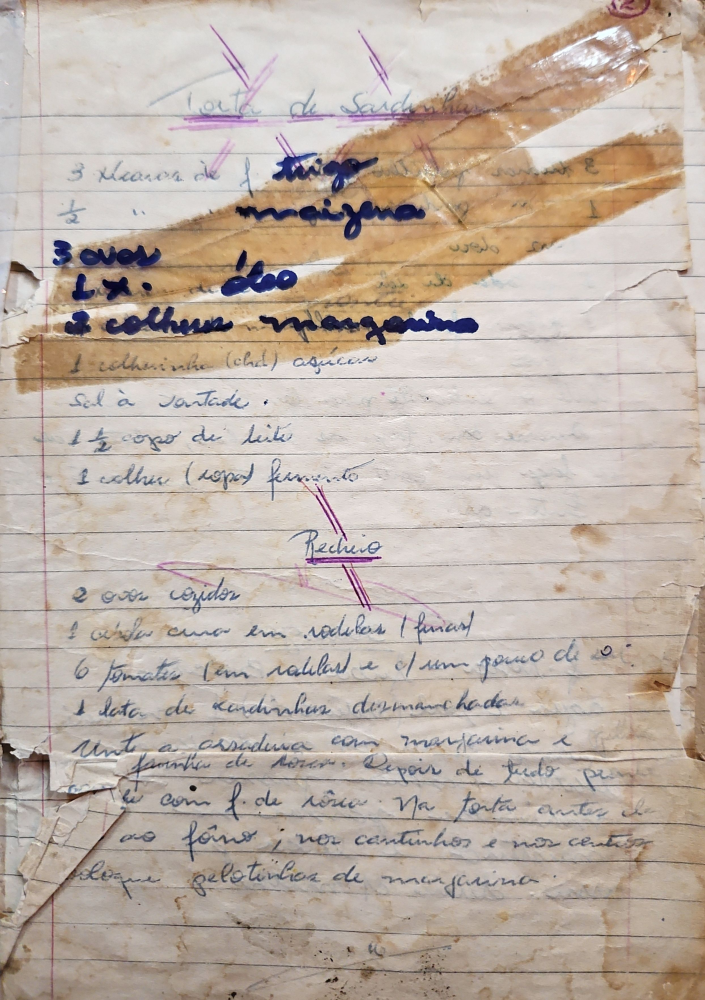 2
Torta de Sardinhas
3 xícaras de f. trigo
1/2 " maizena
3 ovos
1 x. óleo
2 colheres margarina
1 colherinha (chá) açúcar
Sal à vontade.
1 1/2 copo de leite
1 colher (sopa) fermento
Recheio
2 ovos cozidos
1 cebola crua em rodelas (finas)
6 tomates (em rodelas) e c/ um pouco de
1 lata de sardinhas desmanchadas
Unte a assadeira com margarina e
farinha de rosca. Depois de tudo
com f. de rôsca. Na torta antes
ao fôrno; nos cantinhos e nos centros
coloque pelotinhas de margarina.